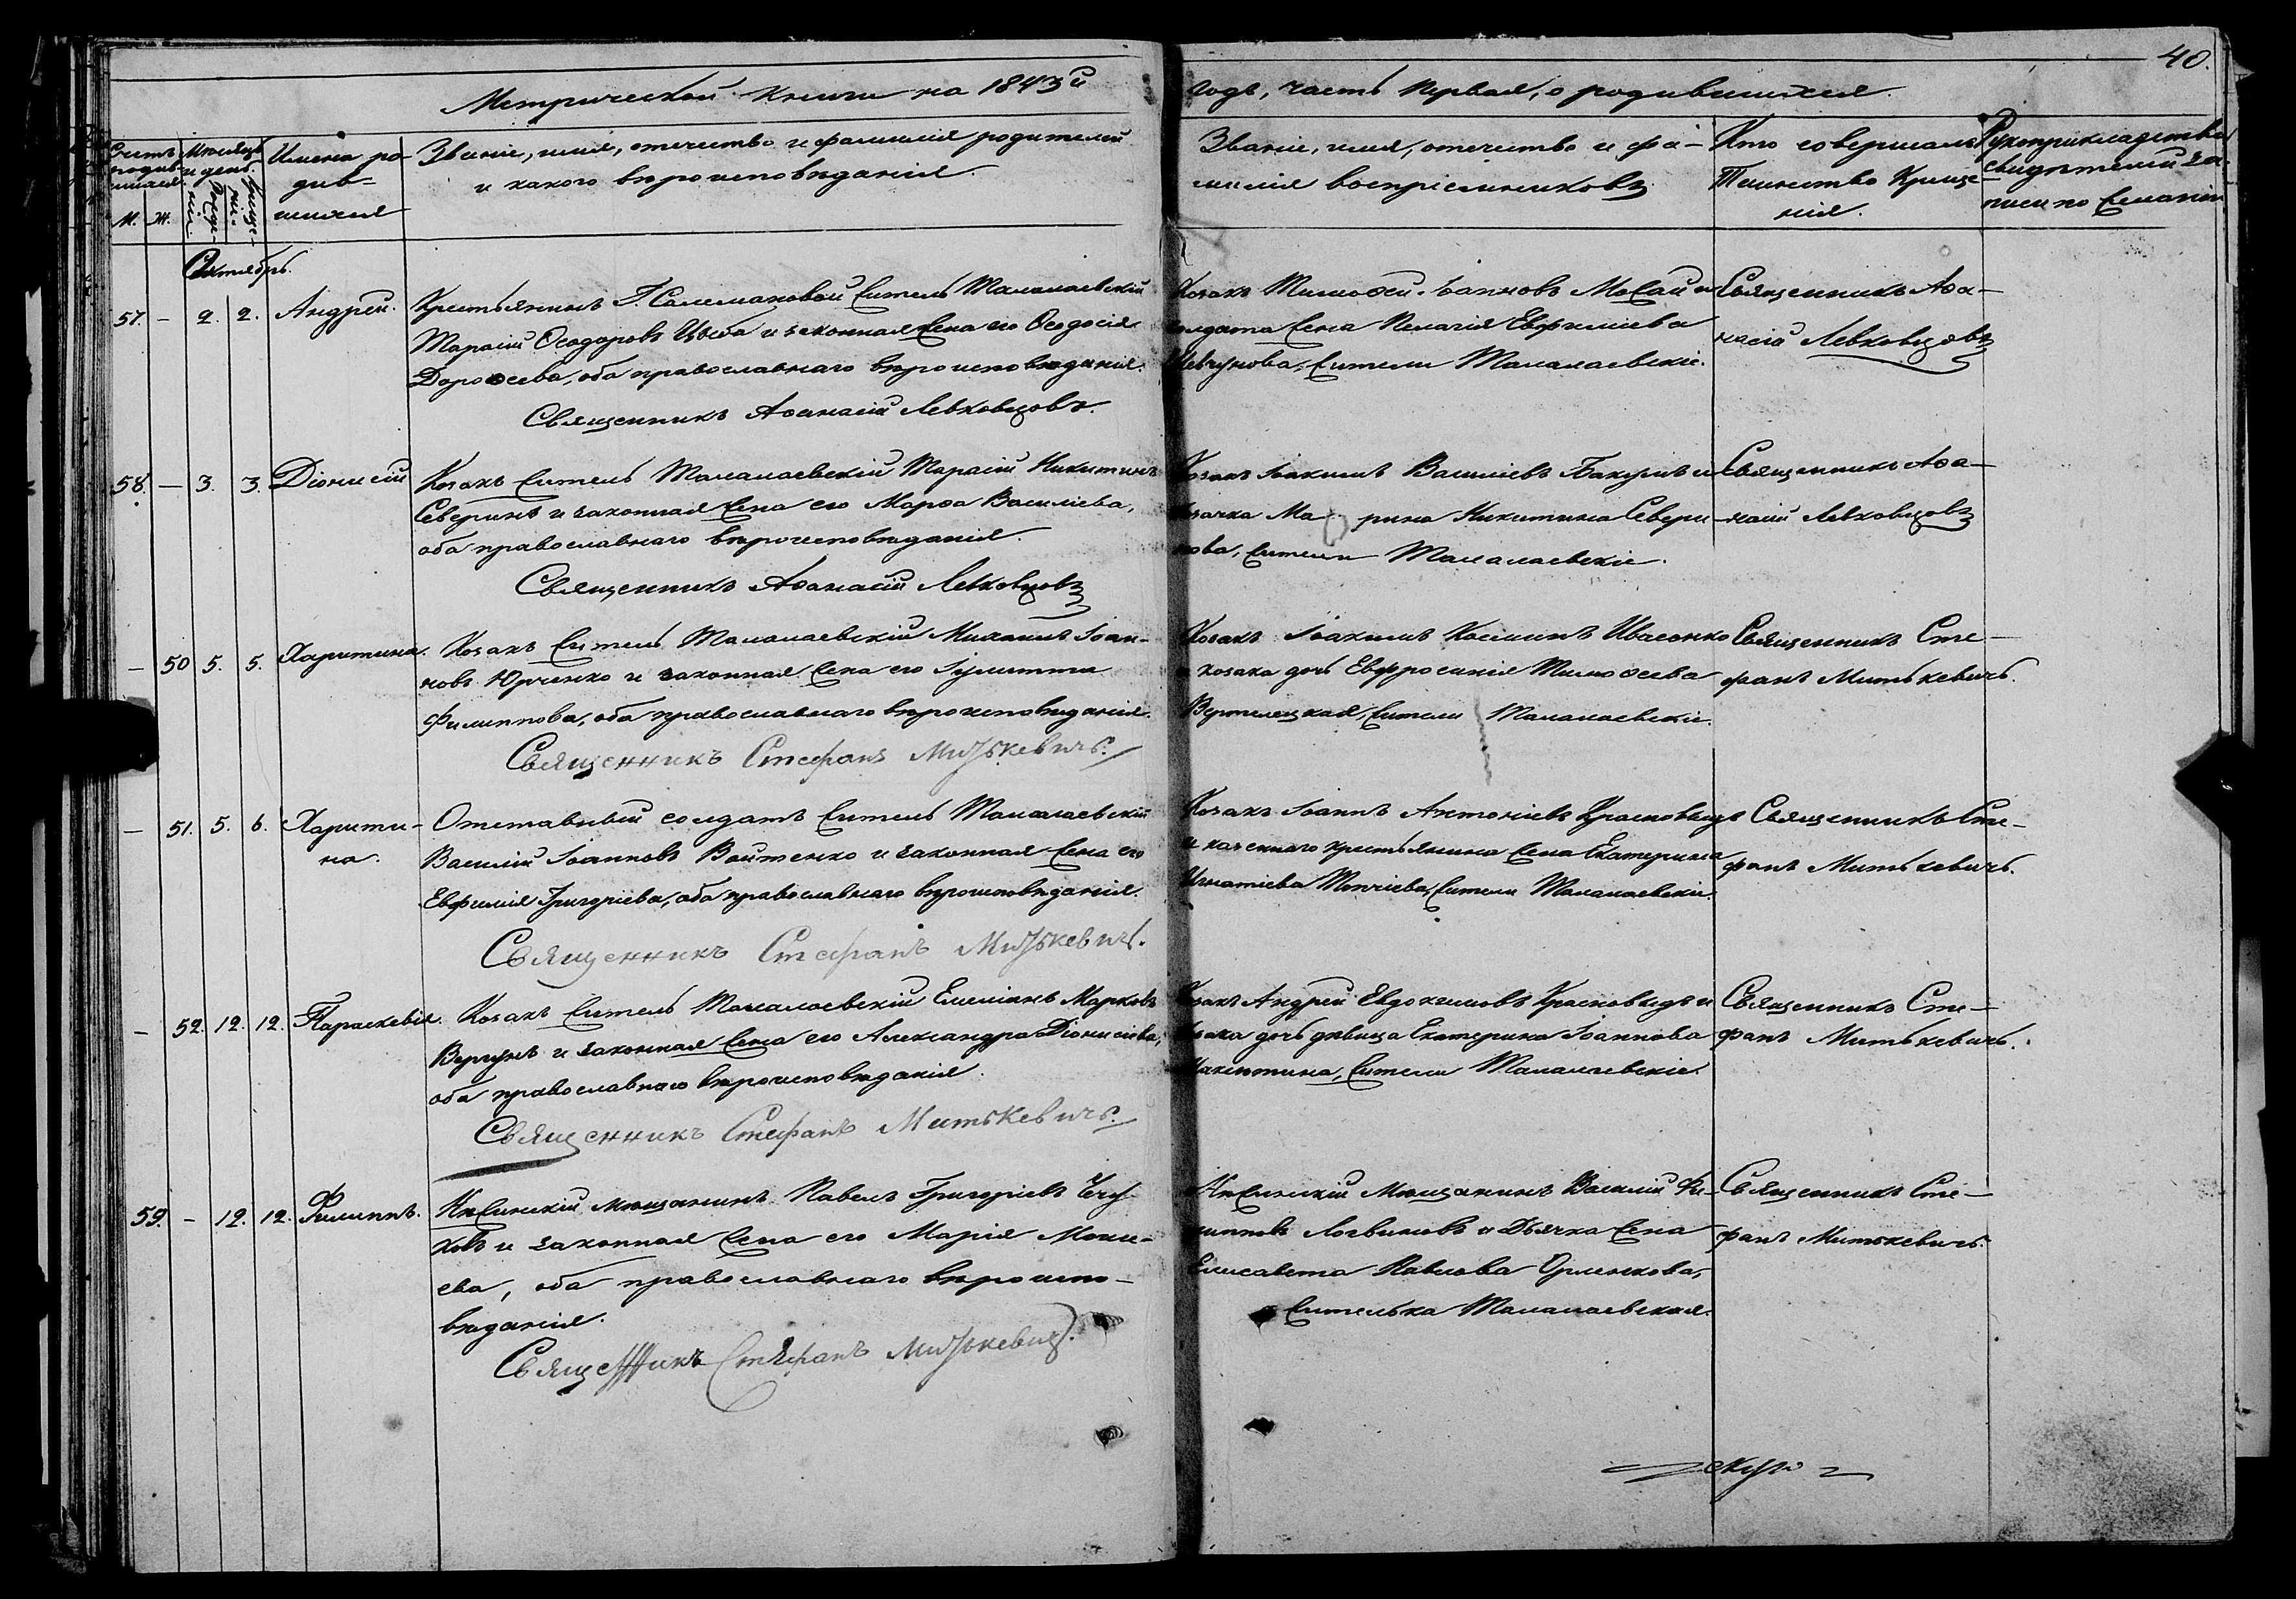 40.
Метрической Книги на 1843й
годъ, часть Первая, о родившихся.
Счетъ родившихся
М. Ж.
Мѣсяцъ и день.
Рожденія
Крещенія
Имена родив-
шихся
Званіе, имя, отечество и фамилія родителей
и какого вѣроисповѣданія.
Званіе, имя, отечество и фа-
милія воспріемниковъ
Кто совершалъ
Таинство Креще
нія.
Рукоприкладство
свидѣтелей за-
писи по Желанію
Октябрь.
57. — 2. 2. Андрей.
Крестьянинъ Г. Жителъ Талалаевскій
Тарасій Ѳеодоровъ Цыба и законная Жена его Ѳеодосія
Дороѳеева, оба православнаго вѣроисповѣданія.
Священникъ Аѳанасій Левковцовъ.
Козакъ Тимоѳей Іоанновъ и
солдата Жена Пелагія Евфиміева
Жители Талалаевскіе.
Священникъ Аѳа-
насій Левковцовъ
58. — 3. 3. Діонисій
Козакъ Житель Талалаевскій Тарасій Никитинъ
Северинъ и законная Жена его Марѳа Василіева,
оба православнаго вѣроисповѣданія.
Священникъ Аѳанасій Левковцовъ
Козакъ Іоакимъ Василіевъ Бакумъ и
козачка Марина Никитина Севери
нова, Жители Талалаевскіе.
Священникъ Аѳа-
насій Левковцовъ
— 50 5. 5. Харитина.
Козакъ Житель Талалаевскій Михаилъ Іоан-
новъ Юрченко и законная Жена его Іулитта
Филиппова, оба православнаго вѣроисповѣданія.
Священникъ Стефанъ Митькевичъ.
Козакъ Іоакимъ Косминъ Ивасенко
и козака дочь Евфросинія Тимоѳеева
Вертелецкая, Жители Талалаевскіе.
Священникъ Сте-
фанъ Митькевичъ.
— 51. 5. 6. Харити-
на.
Отставный солдатъ Житель Талалаевскій
Василій Іоанновъ Войтенко и законная Жена его
Евфимія Григоріева, оба православнаго вѣроисповѣданія.
Священникъ Стефанъ Митькевичъ.
Козакъ Іоаннъ Антоніевъ Красновидъ
и казеннаго крестьянина Жена Екатерина
Игнатіева Жители Талалаевскіе.
Священникъ Сте-
фанъ Митькевичъ.
— 52. 12. 12. Параскевія.
Козакъ Житель Талалаевскій Емеліанъ Марковъ
Вергунъ и законная Жена его Александра Діонисіева,
оба православнаго вѣроисповѣданія.
Священникъ Стефанъ Митькевичъ.
Козакъ Андрей Евдокимовъ Красновидъ и
козака дочь дѣвица Екатерина Іоаннова
Жители Талалаевскіе.
Священникъ Сте-
фанъ Митькевичъ.
59. — 12. 12. Филиппъ.
Нѣжинскій мѣщанинъ Павелъ Григоріевъ
и законная Жена его Марія
ева, оба православнаго вѣроиспо-
вѣданія.
Священникъ Стефанъ Митькевичъ.
Нѣжинскій Мѣщанинъ Василій Фи-
липповъ Логвиновъ и Дьячка Жена
Елисавета Павлова
Жителька Талалаевская.
Священникъ Сте-
фанъ Митькевичъ.